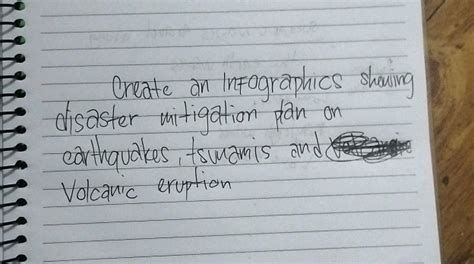 Create an Infographics showing
disaster mitigation plan on
earthquakes, tsunamis and
Volcanic eruption